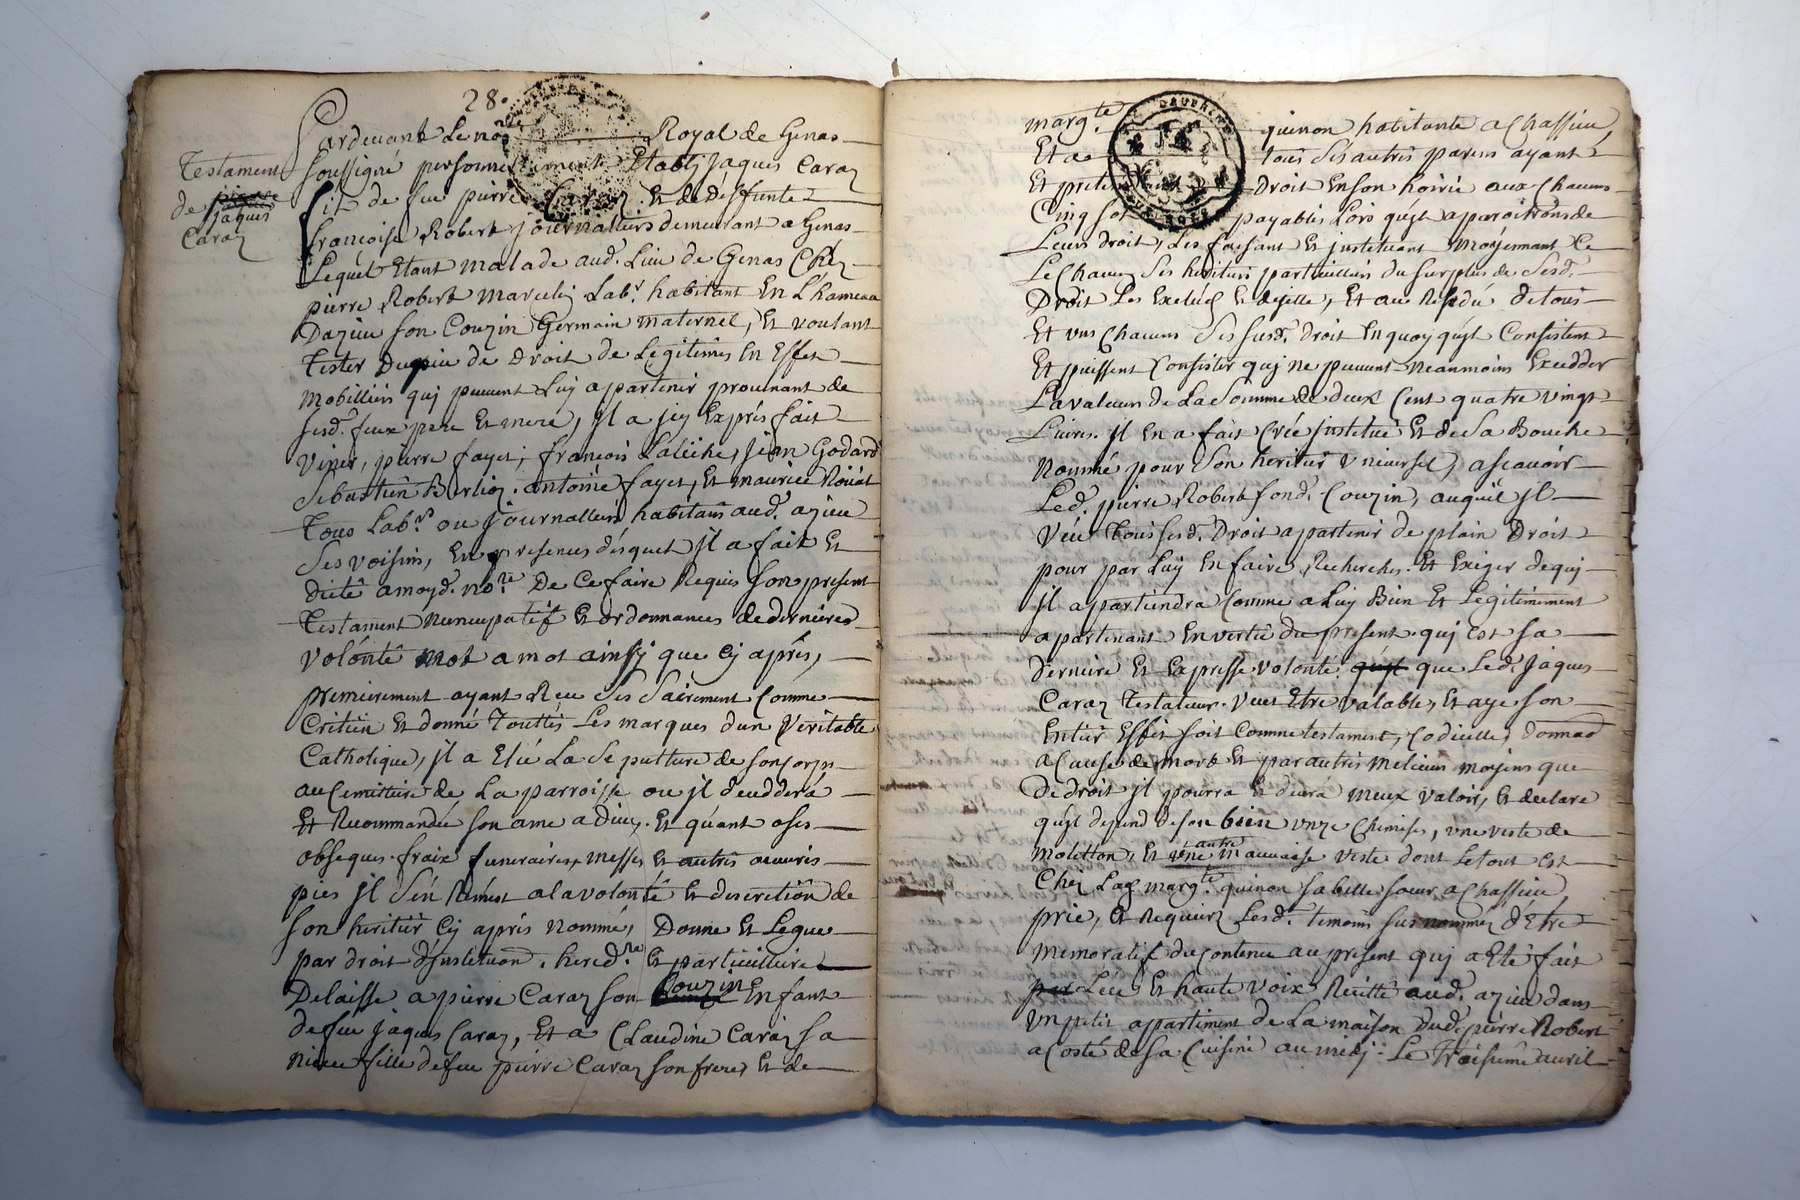 28.
Testament
de pierre
jaques
Caraz
Pardevant Le nore Royal de Genas
soussigné personnellement Etably jaques Caraz
fils de feu pierre Caraz. Et de deffunte
francoise Robert journalliers demeurant a Genas
Lequel Etant malade aud. Lieu de Genas Chez
pierre Robert Marcelin Labr. habitant En L'hameau
Dazieu son Couzin Germain maternel, Et voulant
tester du peu de Droit de Legitimes En Effet
mobilliers quj peuvent Luy apartenir provenant de
sesd. feux pere Et mere, jl a jcy Exprés fait
Venir, pierre fayet, francois Laliche, jean Godard
Sebastien Berlioz. antoine fayet, Et maurice Noúat
Tous Labrs. ou journalliers habitans aud. azieu
Ses voisins, En presences desquels jl a fait Et
dicté a moyd. nore. De Ce faire Requis son present
Testament nuncupatif Et ordonnances de dernieres
volonté mot a mot ainsy que Cy aprés,
premierement ayant Receu Ses Sairement Comme
Critien Et donné Touttes Les marques d'un Veritable
Catholique, jl a Eleé La Sepulture de son corps
au Cemittiere de La parroisse ou jl deuddera
Et Recommandée son ame a Dieu. Et quant a ses
obseques. fraix funeraires, messes, Et autres oeuvres
pies jl s'en Remest a la volonté Et discretion de
son heritier Cy aprés nommé, Donne Et Legue
par droit d'jnstitution. heredre. Et particuilliere
Delaisse a pierre Caraz son Couzin Enfant
de feu jaques Caraz, Et a Claudine Caraz sa
niece fille de feu pierre Caraz son frere, Et de
margte. quinon habitante a Chassieu,
Et a tous Ses autres parens ayant
Et pretendant Droit En son hoirie aux Chacuns
Cinq sols payables Lors qu'yl aparoitrons de
Leurs droit, Les faisant Et jnstituant moyennant Ce
Le Chacun Ses heritiers particulliers du surplus de Sesd.
Droit Les Exclud Et dejette, Et au Residu de tous
Et uns Chacuns Ses susd. droit En quoy qu'yl Consistent
Et puissent Consister quj ne peuvent neanmoins Exedder
La valeurs de La Somme de deux Cent quatre vingt
Livres. jl En a fait Créé jnstitué Et de Sa Bouche
Nommé pour Son heritier Universel, ascavoir
Led. pierre Robert sond. Couzin, auquel jl
Veut Tous sesd. Droit apartenir de plain Droit
pour par Luy En faire Recherches. Et Exiger de quj
jl apartiendra Comme a Luy Bien Et Legitimement
apartenant En vertu du present. quj Est sa
derniere Et Expresse volonté qu'yl que Led. jaques
Caraz Testateur. Veut Etre valable, Et aye son
Entier Effet soit Comme testament, Codicille, donnaon
a Cause de mort Et par autres melieurs moyens que
De droit jl pourra Et devra mieux valoir, Et declare
qu'yl depend de son bien unze Chemises, une veste de
moletton, Et une autre mauvaise veste dont Le tout Est
Chéz Lad. margte. quinon sa belle soeur a Chassieu,
prie, Et Requiers Lesd. temoins sus nommez d'Etre
memoratif du Contenu au present quj a Eté fait
par Léu Et haute voix Recitté aud. azieu dans
Un petit apartiment de La maison dud. pierre Robert
a Costé de Sa Cuisine au midj. Le Troisieme avril